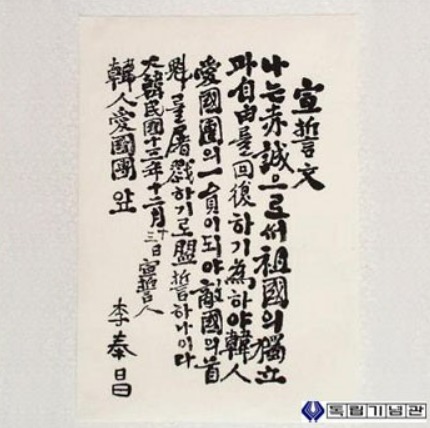 宣誓文
나는赤誠으로써祖國의獨立
과自由를回復하기爲하야韓人
愛國團의一員이되야敵國의首
魁를屠戮하기로盟誓하나이다
大韓民國十三年十二月十三日 宣誓人
韓人愛國團앞 李奉昌
독립기념관